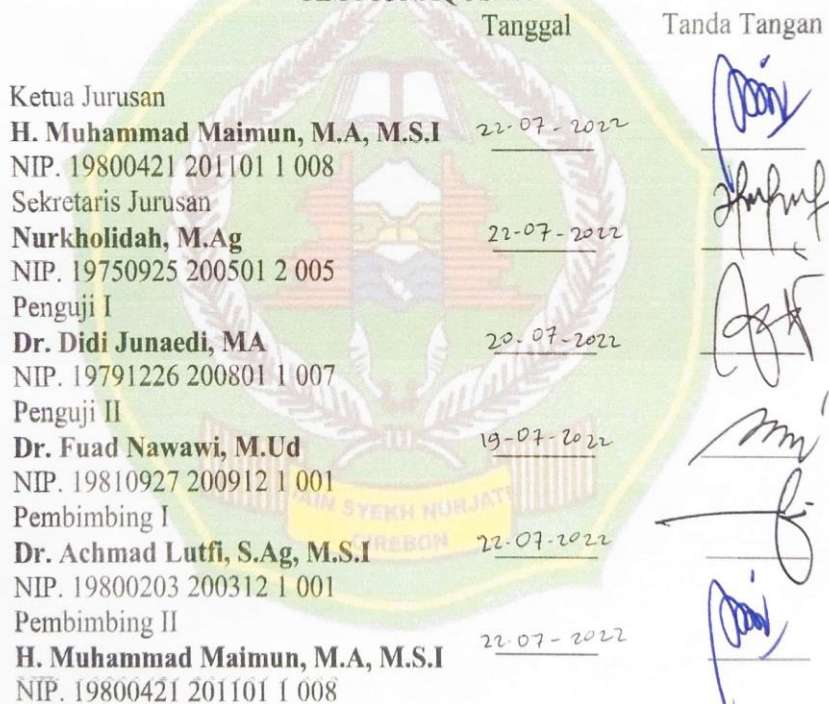 Tanggal Tanda Tangan
Ketua Jurusan
H. Muhammad Maimun, M.A, M.S.I 22-07-2022
NIP. 19800421 201101 1 008
Sekretaris Jurusan
Nurkholidah, M.Ag 22-07-2022
NIP. 19750925 200501 2 005
Penguji I
Dr. Didi Junaedi, MA 20-07-2022
NIP. 19791226 200801 1 007
Penguji II
Dr. Fuad Nawawi, M.Ud 19-07-2022
NIP. 19810927 200912 1 001
IAIN SYEKH NURJATI
CIREBON
Pembimbing I
Dr. Achmad Lutfi, S.Ag, M.S.I 22-07-2022
NIP. 19800203 200312 1 001
Pembimbing II
H. Muhammad Maimun, M.A, M.S.I 22-07-2022
NIP. 19800421 201101 1 008